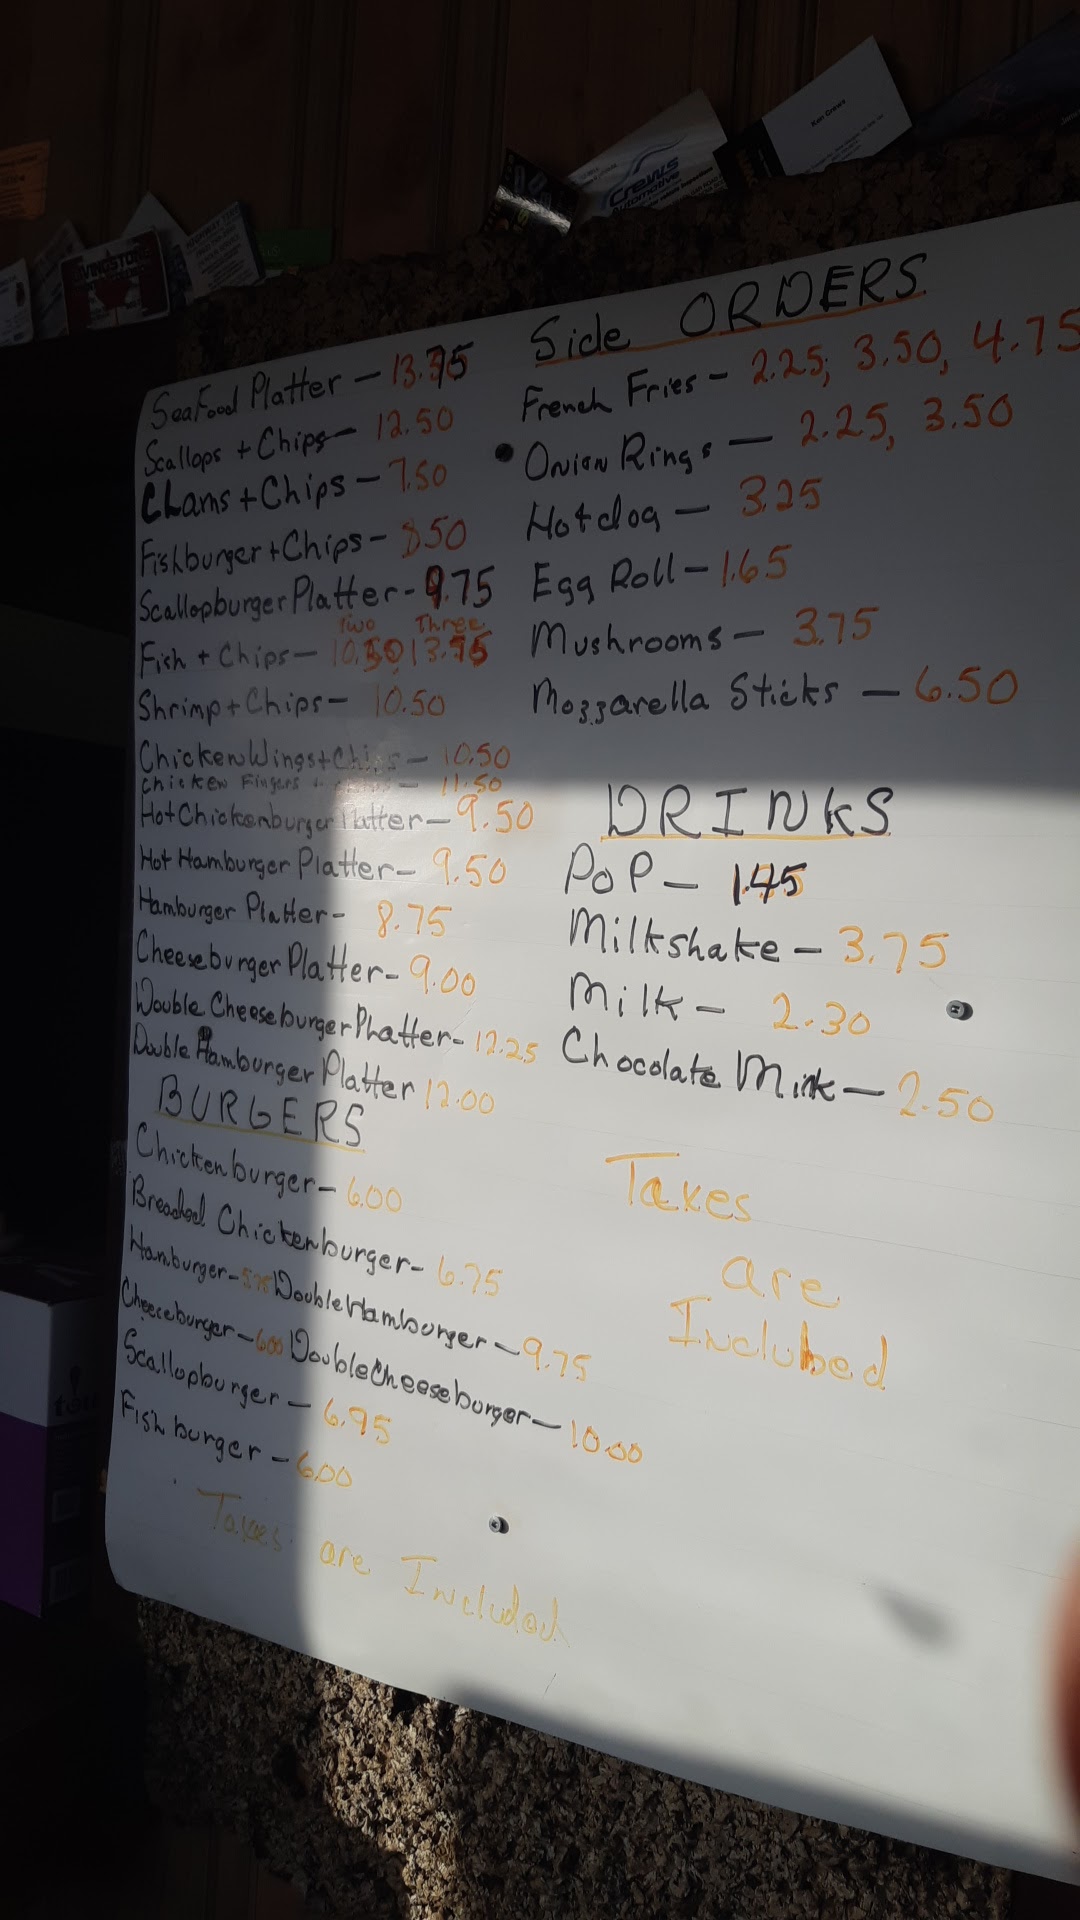 Crews
Automotive
Ken Crews
SeaFood Platter - 13.75
Scallops + Chips - 12.50
CLams + Chips - 7.50
Fishburger + Chips - 8.50
Scallopburger Platter - 9.75
Two Three
Fish + Chips - 10.50 13.75
Shrimp + Chips - 10.50
Chicken Wings + Chips - 10.50
Chicken Fingers + - 11.50
Hot Chickenburger Platter - 9.50
Hot Hamburger Platter - 9.50
Hamburger Platter - 8.75
Cheeseburger Platter - 9.00
Double Cheeseburger Phatter - 12.25
Double Hamburger Platter 12.00
BURGERS
Chickenburger - 6.00
Breaded Chickenburger - 6.75
Hamburger - 5.75 Double Hamburger - 9.75
Cheeseburger - 6.00 Double Cheeseburger - 10.00
Scallopburger - 6.95
Fish burger - 6.00
Taxes are Included
Side ORDERS
French Fries - 2.25, 3.50, 4.75
Onion Rings - 2.25, 3.50
Hotdog - 3.25
Egg Roll - 1.65
Mushrooms - 3.75
Mozzarella Sticks - 6.50
DRINKS
POP -
Milkshake - 3.75
Milk - 2.30
Chocolate Milk - 2.50
Taxes
are
Included